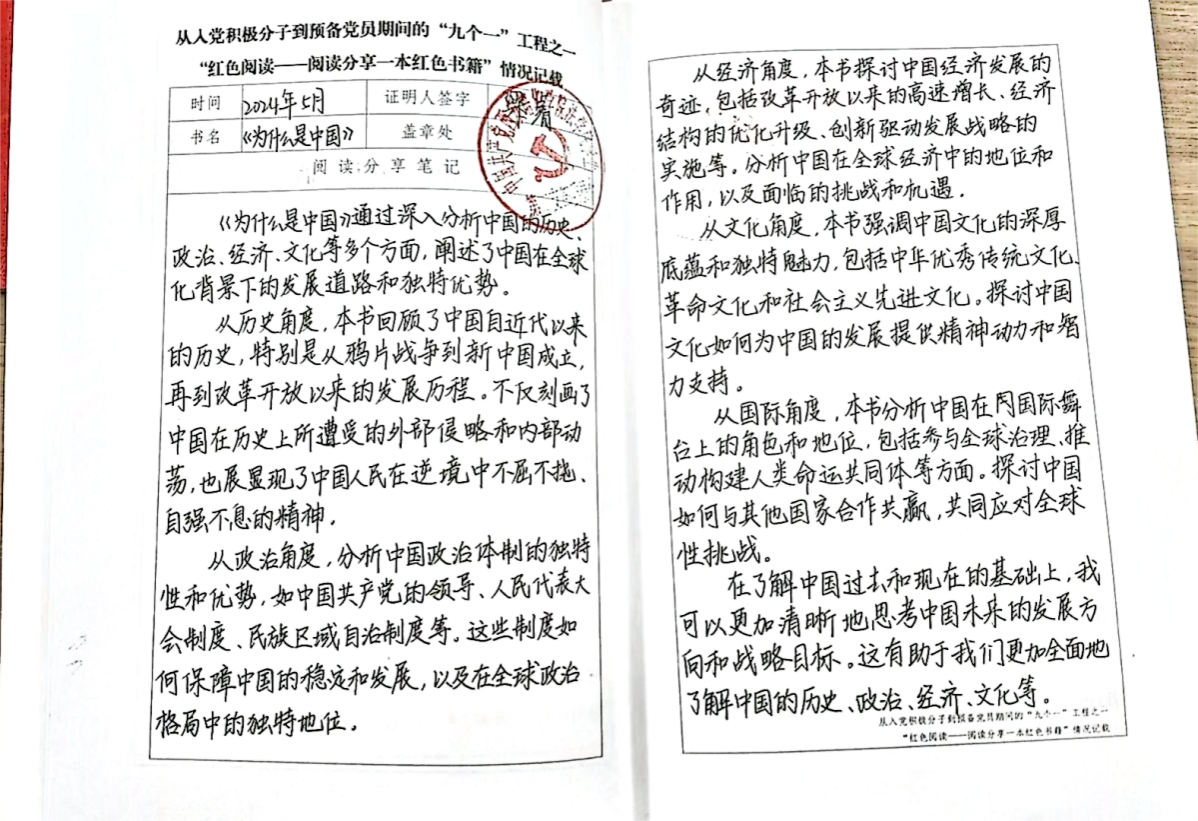 从入党积极分子到预备党员期间的“九个一”工程之一
“红色阅读——阅读分享一本红色书籍”情况记载
时间 2024年5月 证明人签字
书名 《为什么是中国》 盖章处
阅读分享笔记
《为什么是中国》通过深入分析中国的历史、
政治、经济、文化等多个方面，阐述了中国在全球
化背景下的发展道路和独特优势。
从历史角度，本书回顾了中国自近代以来
的历史，特别是从鸦片战争到新中国成立，
再到改革开放以来的发展历程。不仅刻画了
中国在历史上所遭受的外部侵略和内部动
荡，也展显现了中国人民在逆境中不屈不挠、
自强不息的精神．
从政治角度，分析中国政治体制的独特
性和优势，如中国共产党的领导、人民代表大
会制度、民族区域自治制度等。这些制度如
何保障中国的稳定和发展，以及在全球政治
格局中的独特地位．
从经济角度，本书探讨中国经济发展的
奇迹，包括改革开放以来的高速增长、经济
结构的优化升级、创新驱动发展战略的
实施等。分析中国在全球经济中的地位和
作用，以及面临的挑战和机遇．
从文化角度，本书强调中国文化的深厚
底蕴和独特魅力，包括中华优秀传统文化、
革命文化和社会主义先进文化。探讨中国
文化如何为中国的发展提供精神动力和智
力支持。
从国际角度，本书分析中国在国际舞
台上的角色和地位，包括参与全球治理、推
动构建人类命运共同体等方面。探讨中国
如何与其他国家合作共赢，共同应对全球
性挑战。
在了解中国过去和现在的基础上，我
可以更加清晰地思考中国未来的发展方
向和战略目标。这有助于我们更加全面地
了解中国的历史、政治、经济、文化等。
从入党积极分子到预备党员期间的“九个一”工程之一
“红色阅读——阅读分享一本红色书籍”情况记载